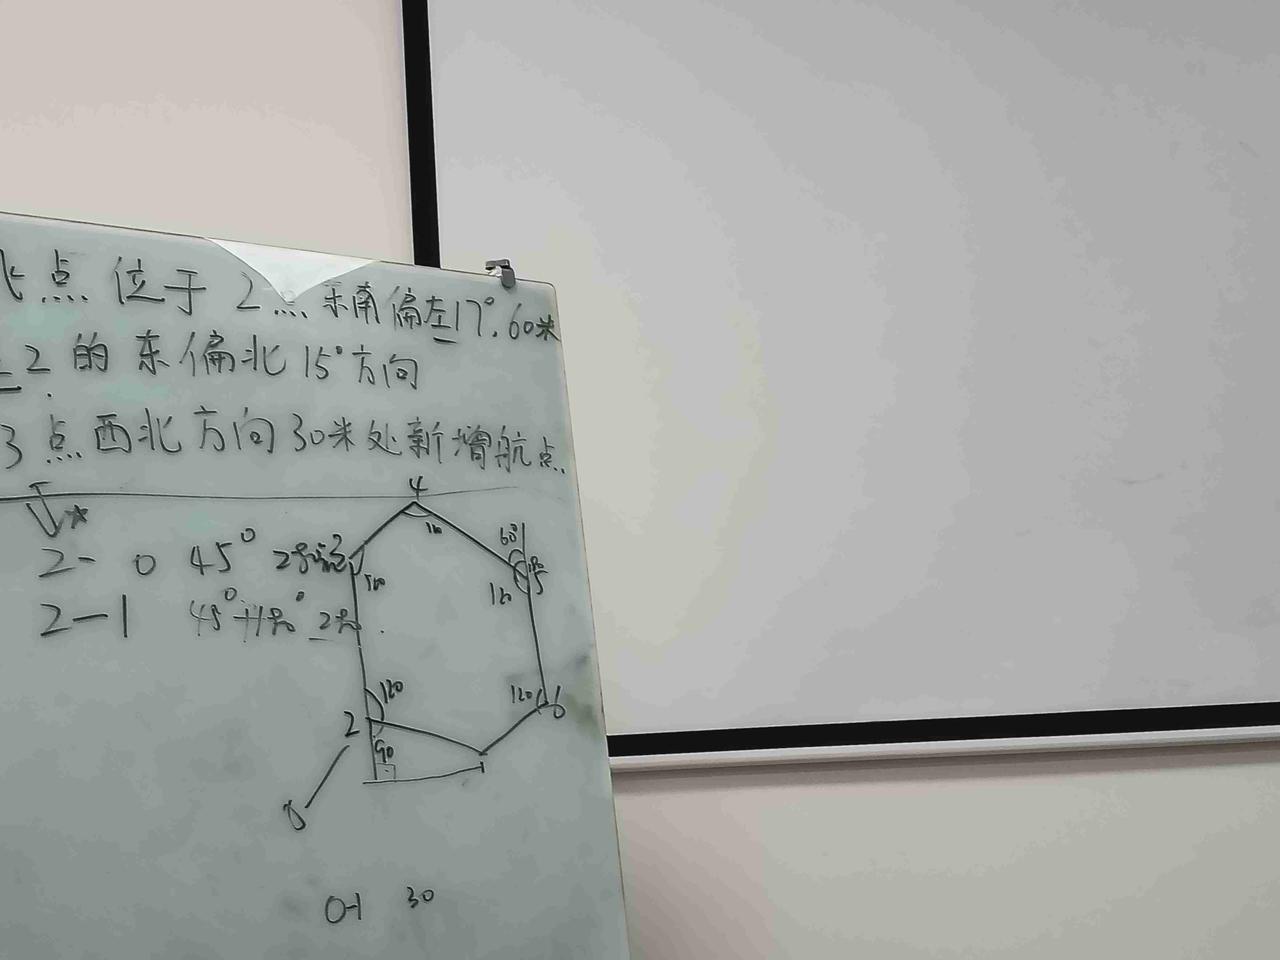 点位于2点东南偏左17°.60米
2的东偏北15°方向
3点西北方向30米处新增航点
4
2-0 45° 2号
60°
120
5
120
120
2-1 45°
120
120
6
2
90
1
0
0-1 30